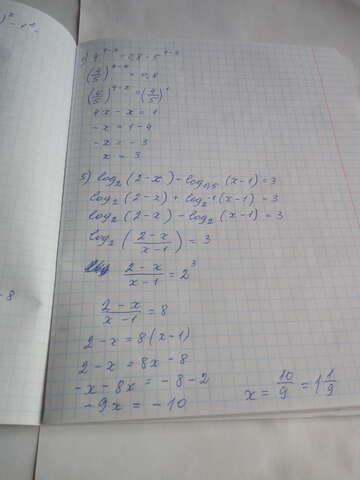 4^{4-x} = 0,8 · 5^{4-x}
(4/5)^{4-x} = 0,8
(4/5)^{4-x} = (4/5)^1
4x - x = 1
-x = 1 - 4
-x = -3
x = 3
5) log₂(2-x) - log₀,₅(x-1) = 3
log₂(2-x) + log₂⁻¹(x-1) = 3
log₂(2-x) - log₂(x-1) = 3
log₂((2-x)/(x-1)) = 3
(2-x)/(x-1) = 2³
(2-x)/(x-1) = 8
2-x = 8(x-1)
2-x = 8x - 8
-x - 8x = -8 - 2
-9x = -10
x = 10/9 = 1 1/9
-8